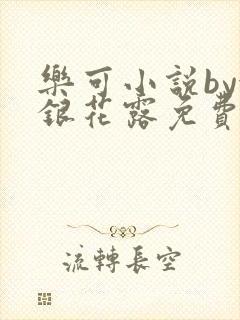 樂可小説by
銀花露免費
流轉長空